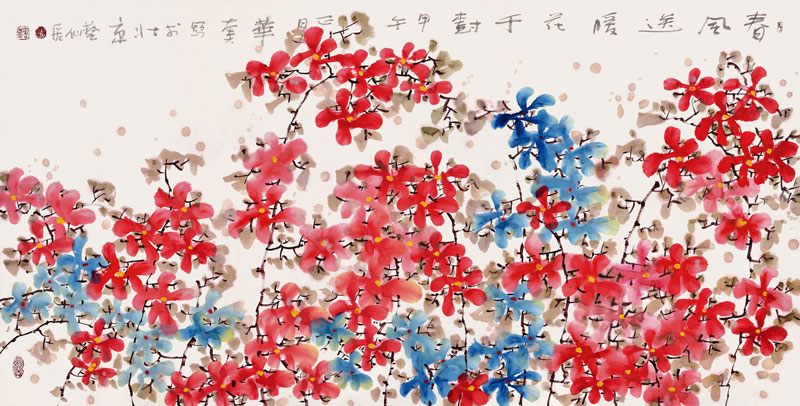 春風送暖花千樹 甲午 月 華奎寫於北京藝仙居